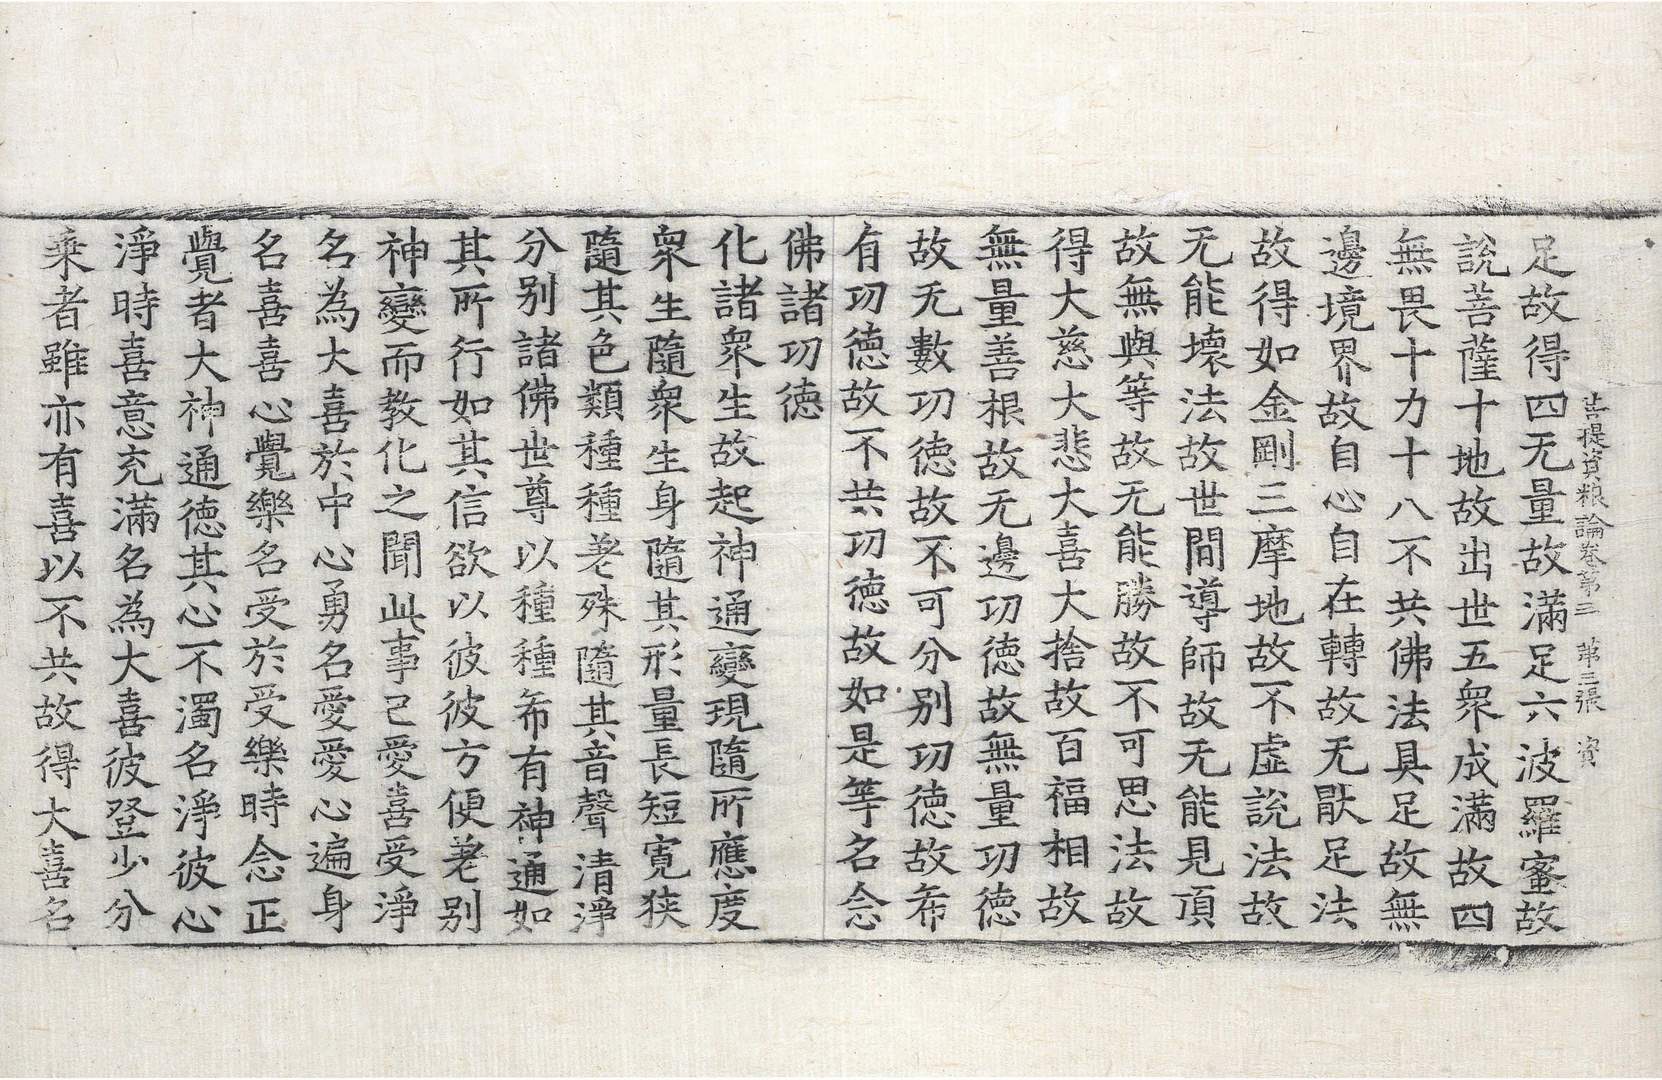 菩提資粮論卷第三 第三張 資
足故得四无量故滿足六波羅蜜故
說菩薩十地故出世五衆成滿故四
無畏十力十八不共佛法具足故無
邊境界故自心自在轉故无厭足法
故得如金剛三摩地故不虛說法故
无能壞法故世間導師故无能見頂
故無與等故无能勝故不可思法故
得大慈大悲大喜大捨故百福相故
無量善根故无邊功德故無量功德
故无數功德故不可分別功德故希
有功德故不共功德故如是等名念
佛諸功德
化諸衆生故起神通變現隨所應度
衆生隨衆生身隨其形量長短寬狹
隨其色類種種差殊隨其音聲清淨
分別諸佛世尊以種種希有神通如
其所行如其信欲以彼彼方便差別
神變而教化之聞此事已愛喜受淨
名為大喜於中心勇名愛愛心遍身
名喜喜心覺樂名受於受樂時念正
覺者大神通德其心不濁名淨彼心
淨時喜意充滿名為大喜彼登少分
乘者雖亦有喜以不共故得大喜名